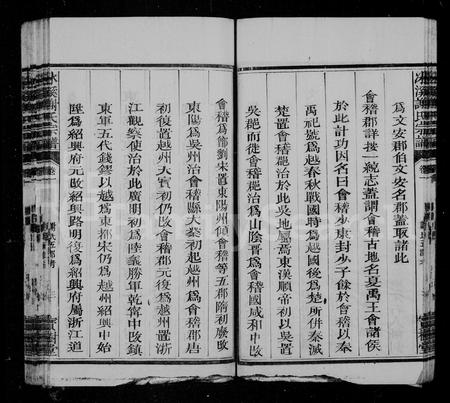 為文安郡伯文安名郡蓋取諸此
會稽郡詳按一統志蓋謂會稽古地名夏禹王會諸侯
於此計功因名曰會稽少康封少子餘於會稽以奉
禹祀號為越春秋戰國時為越國後為楚所併秦滅
楚置會稽郡治於此吳地屬焉東漢順帝初以吳置
吳郡而徙會稽郡治為山陰晋為會稽國咸和中改
會稽為郡劉宋置東陽州傾會稽等五郡隋初廢改
東陽為吳州治會稽縣大業初起越州為會稽郡唐
初復置越州大寳初仍改會稽郡元復為越州置浙
江觀察使治於此廣明初為陸義勝軍乾甯中改鎮
東軍五代錢鏐以越為東都宋仍為越州紹興中始
陞為紹興府元改紹興路明復為紹興府屬浙江道